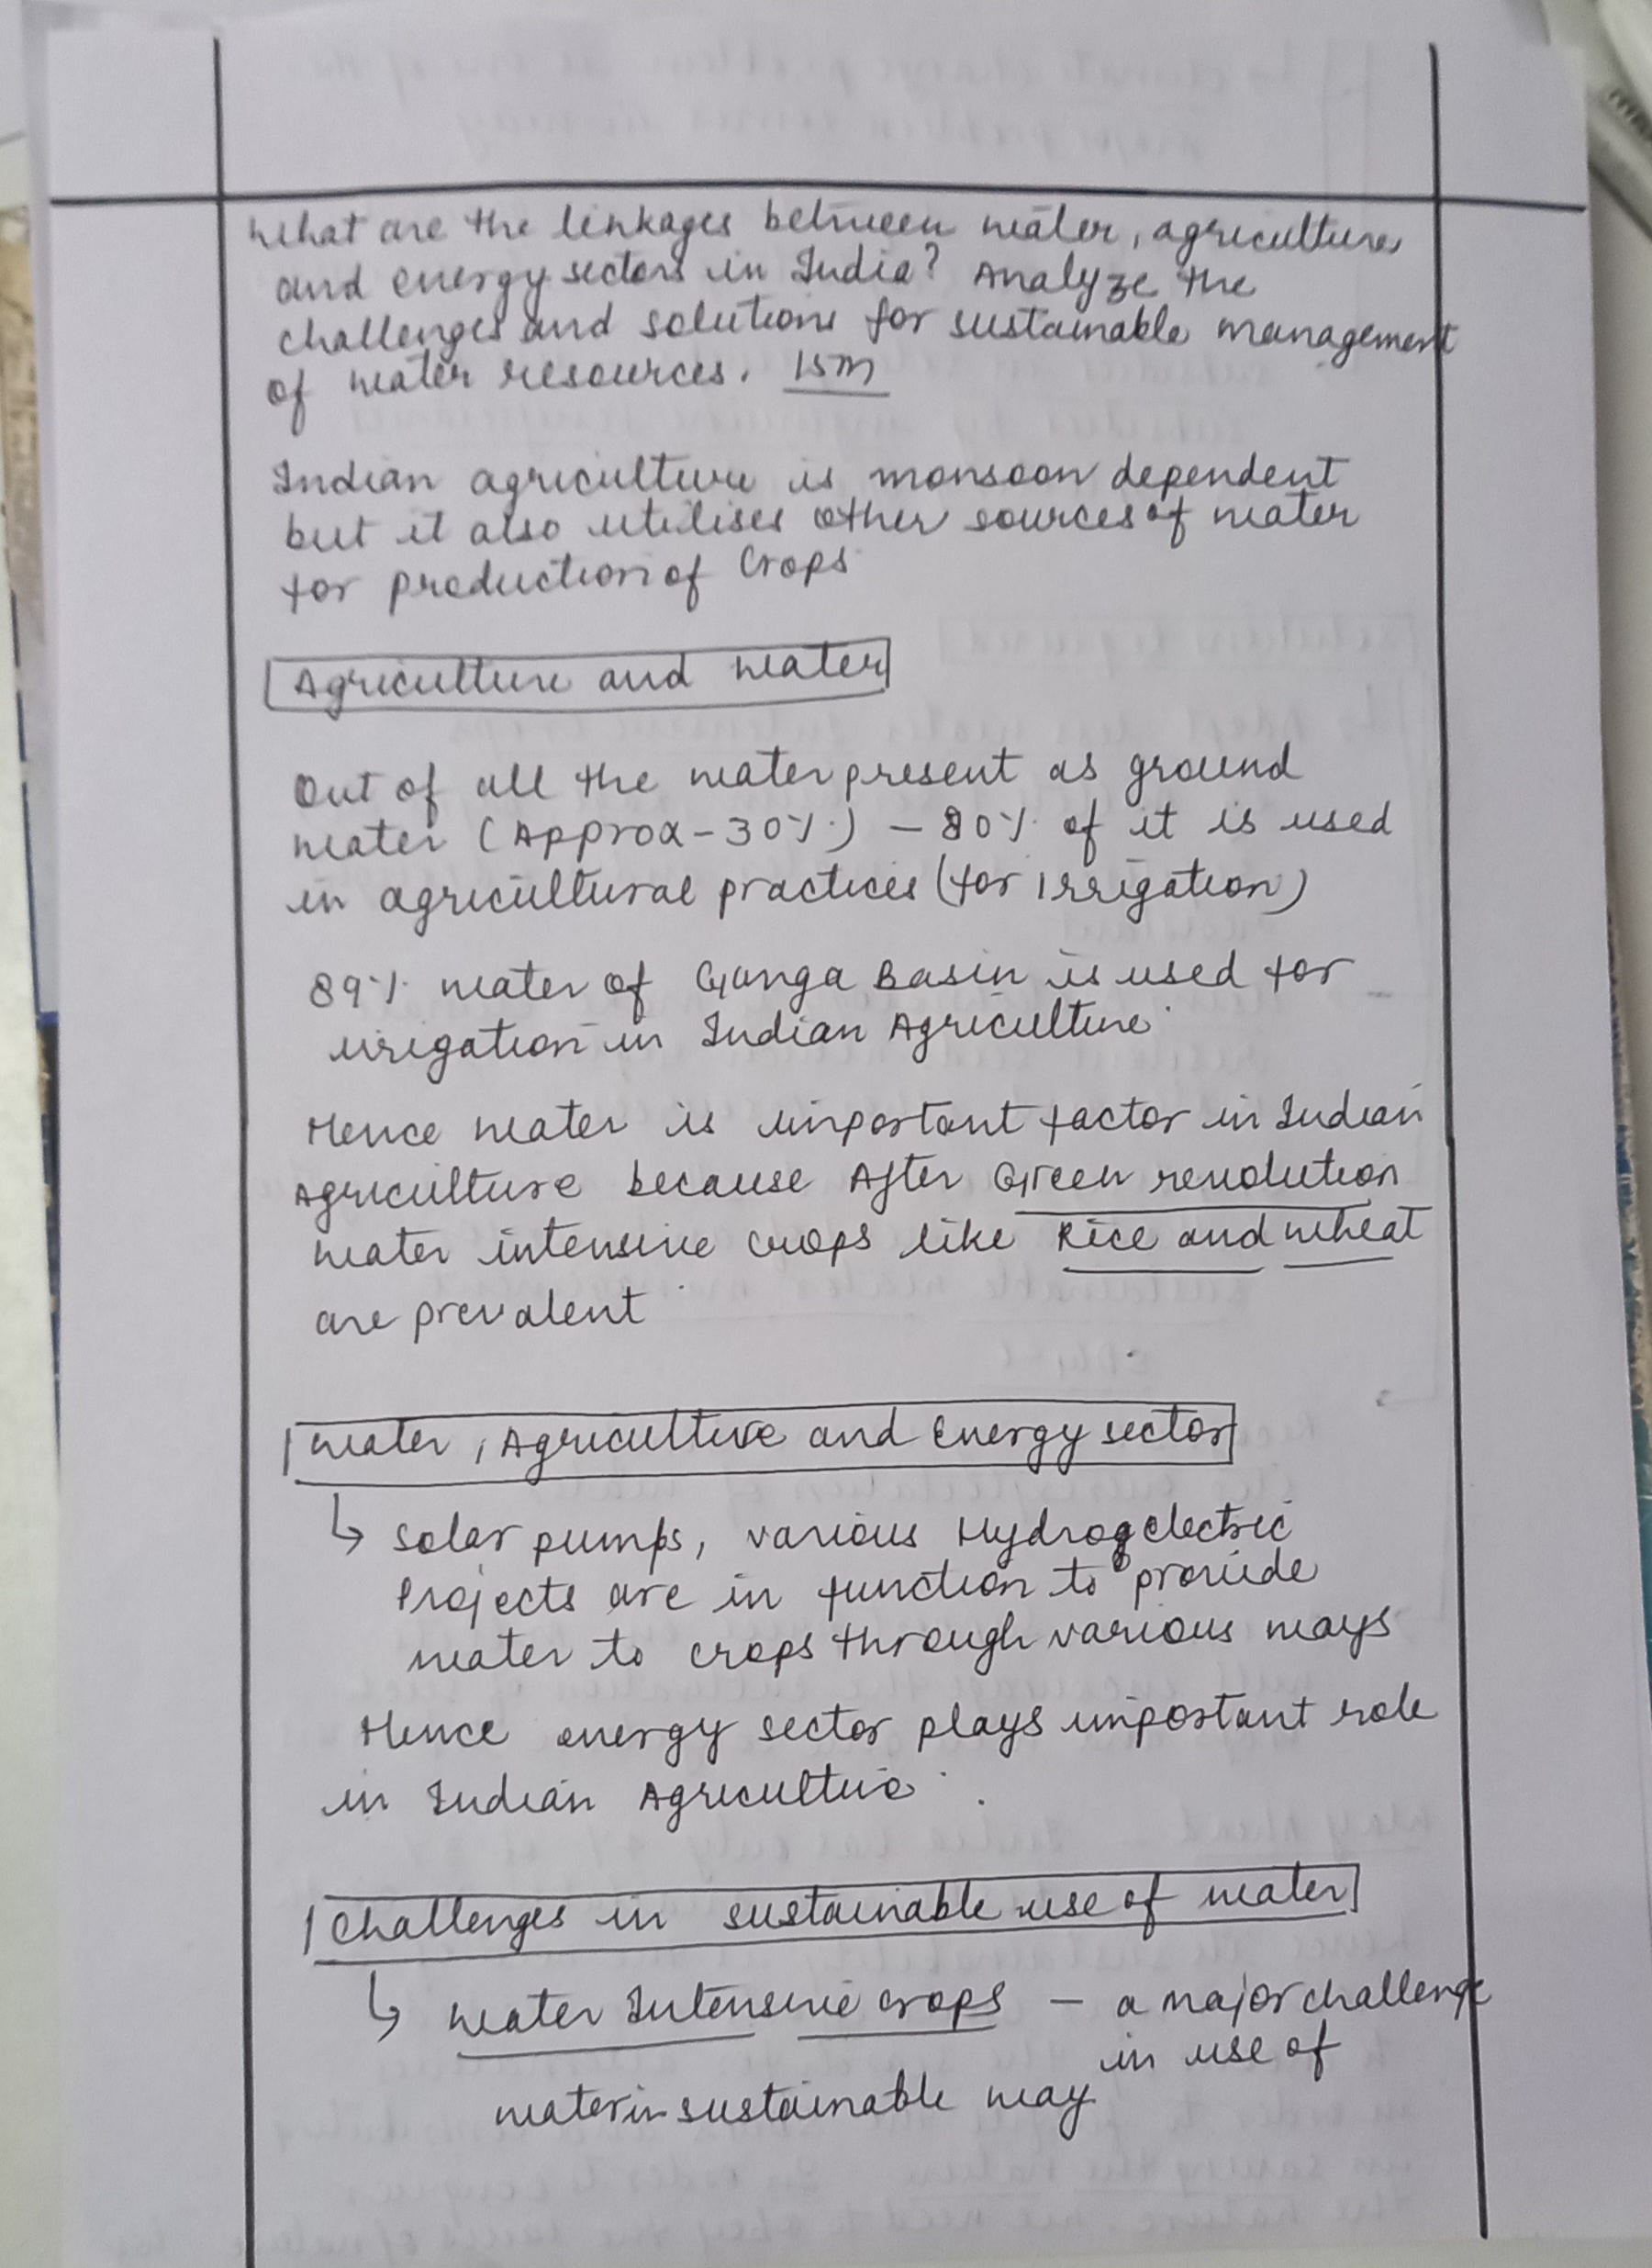 What are the linkages between water, agriculture
and energy sectors in India? Analyze the
challenges and solutions for sustainable management
of water resources. 15m
Indian agriculture is monsoon dependent
but it also utilises other sources of water
for production of Crops
Agriculture and water
Out of all the water present as ground
water (Approx-30%) - 80% of it is used
in agricultural practices (for irrigation)
89% water of Ganga Basin is used for
irrigation in Indian Agriculture.
Hence water is important factor in Indian
Agriculture because After Green revolution
water intensive crops like Rice and wheat
are prevalent
Water, Agriculture and Energy sector
↳ Solar pumps, various Hydroelectric
Projects are in function to provide
water to crops through various ways
Hence energy sector plays important role
in Indian Agriculture.
Challenges in sustainable use of water
↳ Water Intensive crops - a major challenge
in use of
water in sustainable way